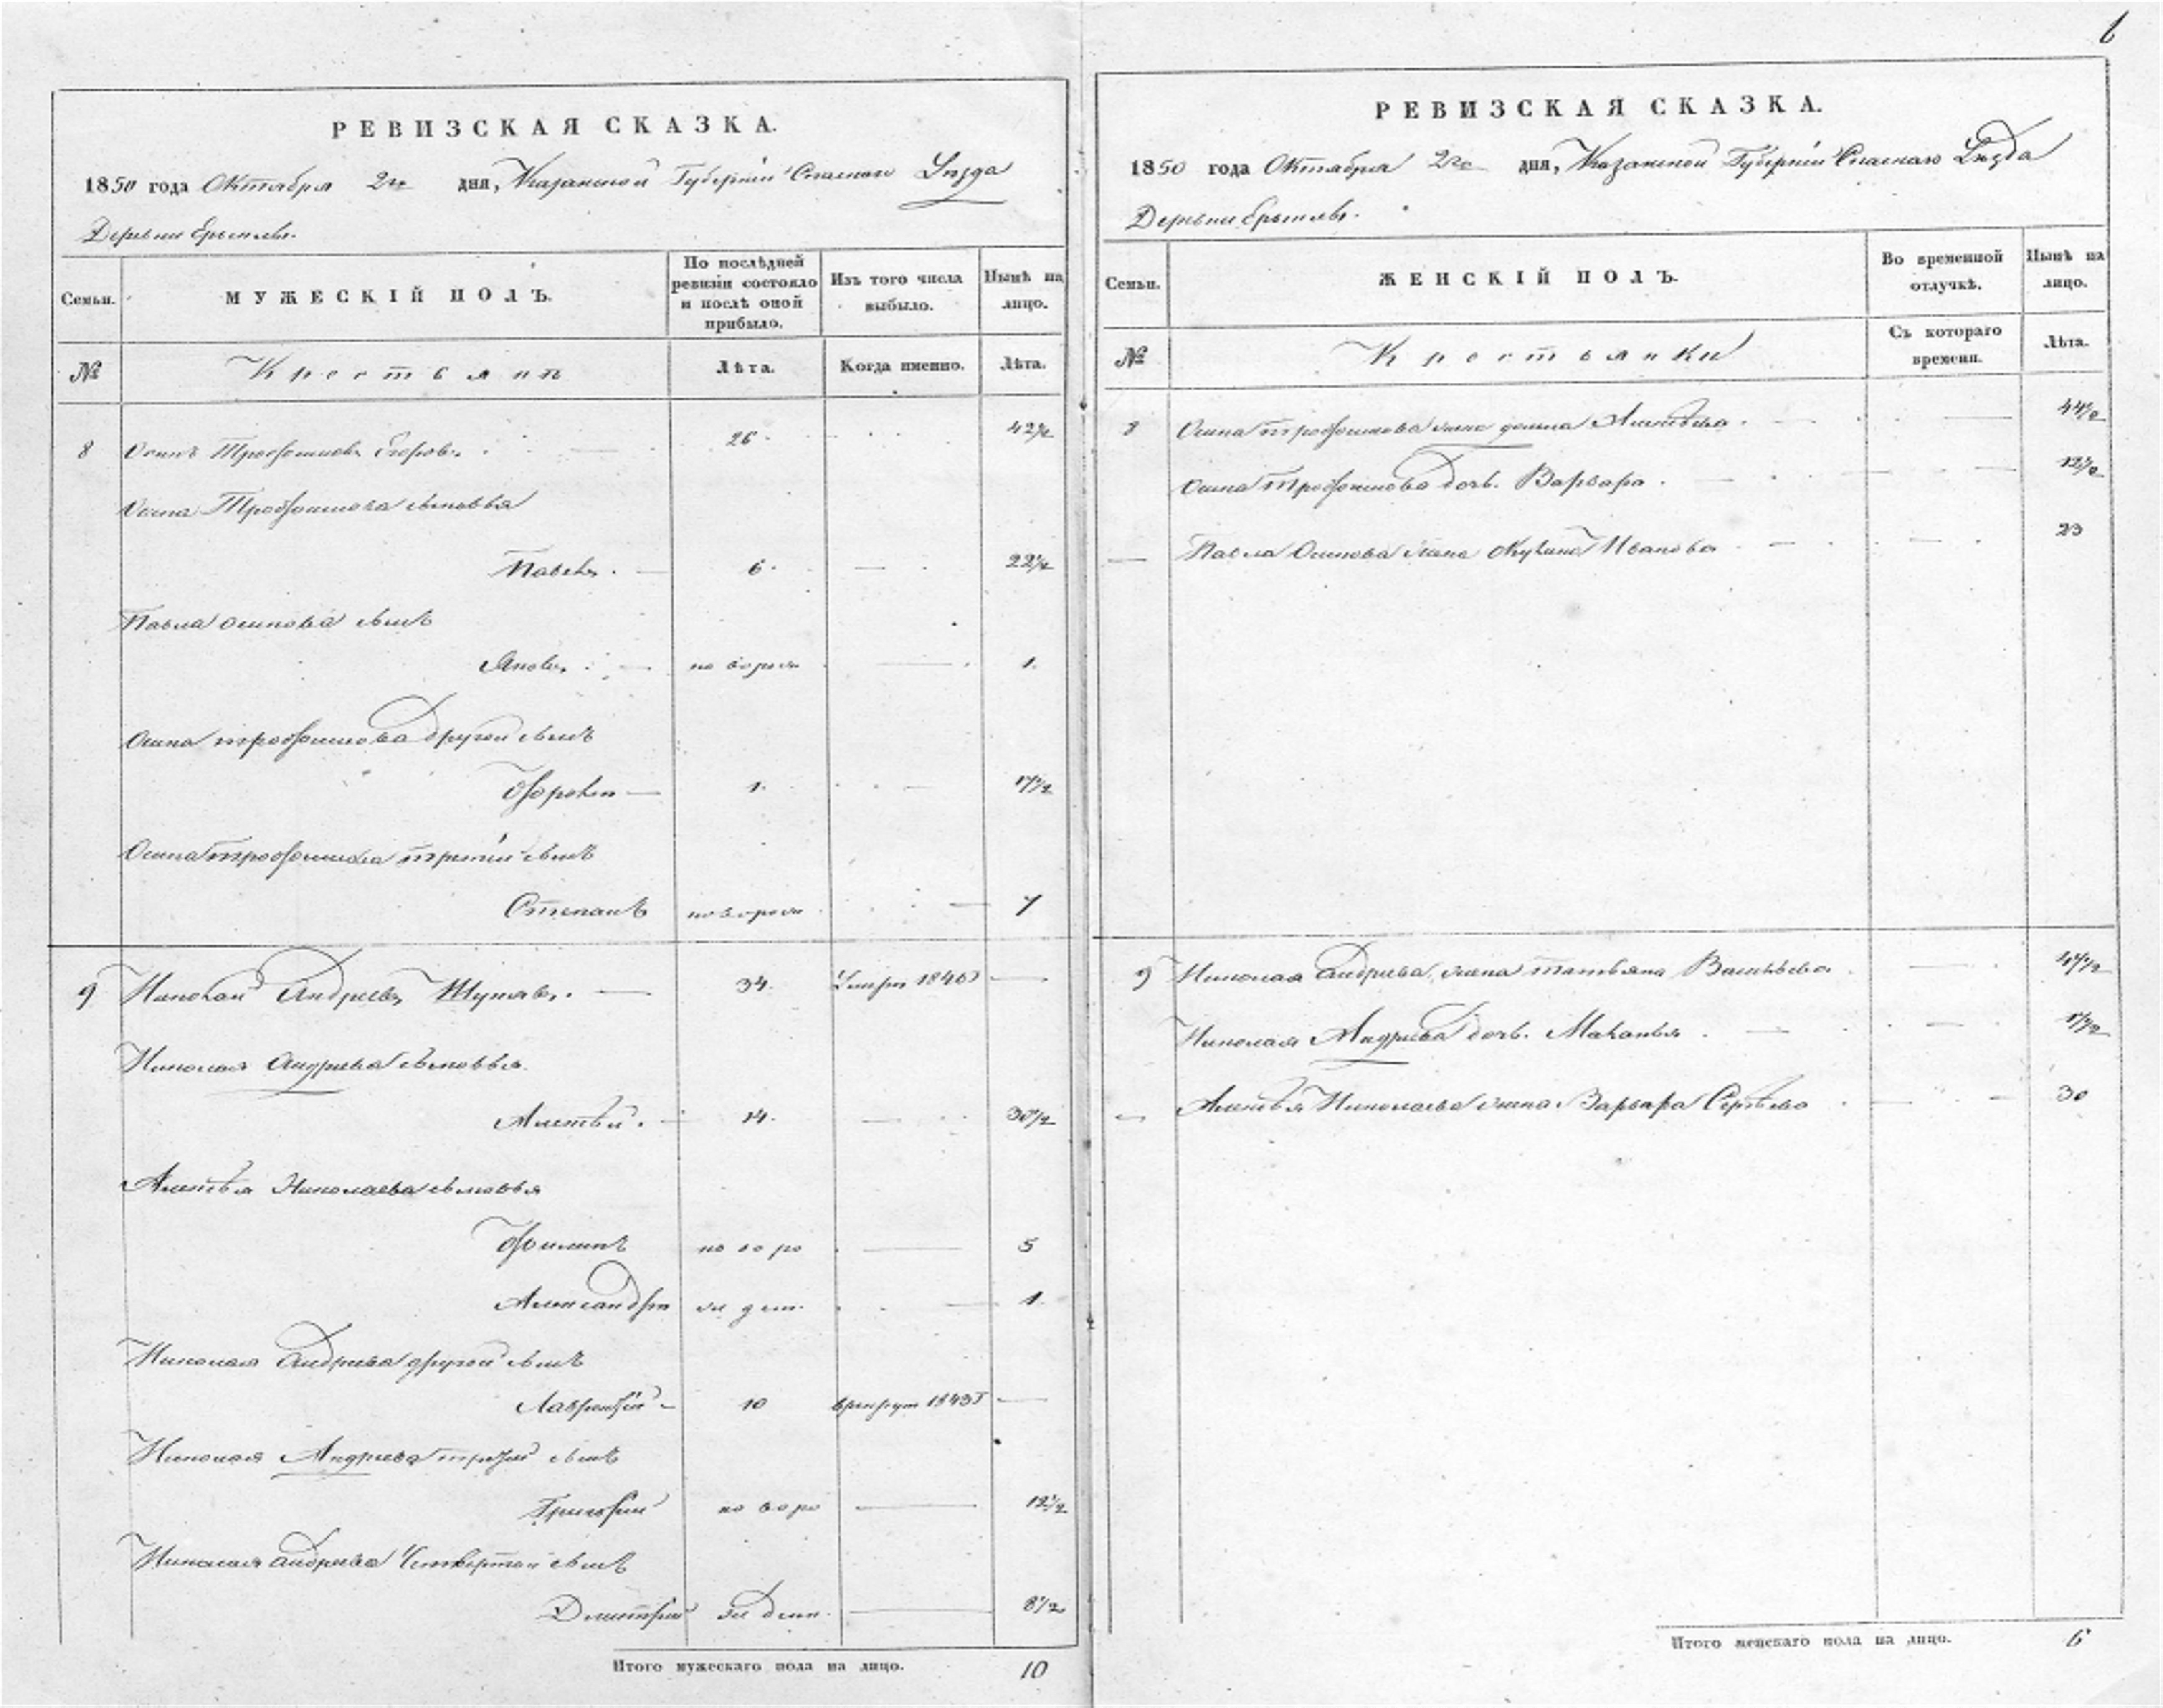 6
РЕВИЗСКАЯ СКАЗКА.
1850 года Октября 2го дня, Казанской Губерніи Спаскаго Уѣзда
Деревни
Семьи. МУЖЕСКІЙ ПОЛЪ. По послѣдней ревизіи состояло и послѣ оной прибыло. Изъ того числа выбыло. Нынѣ на лицо.
№ Крестьянъ Лѣта. Когда именно. Лѣта.
8 Осипъ Трофимовъ Егоровъ. 26. 42½
Осипа Трофимова сыновья
Павелъ. 6. 22½
Павла Осипова сынъ
Яковъ. 1.
Осипа Трофимова другой сынъ
Фролъ 1. 17½
Осипа Трофимова третій сынъ
Степанъ 7
9 Николай Андреевъ 34. 1846 —
Николая Андреева сыновья.
Алексѣй. 14. 30½
Алексѣя Николаева сыновья
Филипъ 5
Александръ 1.
Николая Андреева другой сынъ
Лаврентій 10 врекрут 1843 —
Николая Андреева третій сынъ
Григорій 12½
Николая Андреева Четвертой сынъ
Дмитрій 8½
Итого мужескаго пола на лицо. 10
РЕВИЗСКАЯ СКАЗКА.
1850 года Октября 2го дня, Казанской Губерніи Спаскаго Уѣзда
Деревни
Семьи. ЖЕНСКІЙ ПОЛЪ. Во временной отлучкѣ. Нынѣ на лицо.
№ Крестьянки Съ котораго времени. Лѣта.
8 Осипа Трофимова жена Алексѣева. 44½
Осипа Трофимова дочь. Варвара. 12½
Павла Осипова жена Иванова 23
9 Николая Андреева, жена татьяна Васильева 47½
Николая Андреева дочь. Маланья. 17½
Алексѣя Николаева жена Варвара Сергѣева 30
Итого женскаго пола на лицо. 6